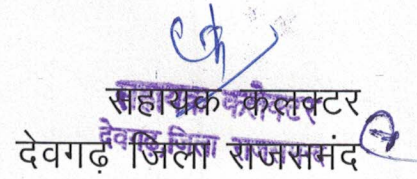 सहायक कलेक्टर
देवगढ़ जिला राजसमंद